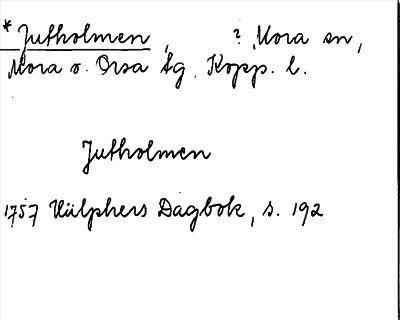 * Jutholmen, ? Mora sn,
Mora o. Orsa tg. Kopp. l.
Jutholmen
1757 Hülphers Dagbok, s. 192